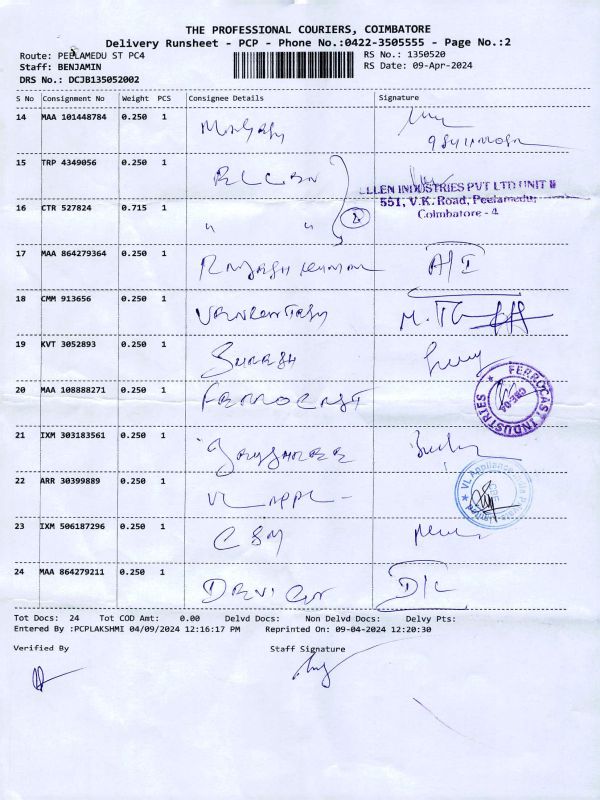 THE PROFESSIONAL COURIERS, COIMBATORE
Delivery Runsheet - PCP - Phone No.:0422-3505555 - Page No.:2
Route: PEELAMEDU ST PC4 RS No.: 1350520
Staff: BENJAMIN RS Date: 09-Apr-2024
DRS No.: DCJB135052002
S No Consignment No Weight PCS Consignee Details Signature
14 MAA 101448784 0.250 1
15 TRP 4349056 0.250 1
ELLEN INDUSTRIES PVT LTD UNIT II
551, V.K. Road, Peelamedu,
Coimbatore - 4
16 CTR 527824 0.715 1 " " 2
17 MAA 864279364 0.250 1 A/I
18 CMM 913656 0.250 1
19 KVT 3052893 0.250 1 SURESH
20 MAA 108888271 0.250 1 FERROCAST
FERROCAST INDUSTRIES CBE-04
21 IXM 303183561 0.250 1
22 ARR 30399889 0.250 1 VL APPL -
23 IXM 506187296 0.250 1 CSM
24 MAA 864279211 0.250 1
Tot Docs: 24 Tot COD Amt: 0.00 Delvd Docs: Non Delvd Docs: Delvy Pts:
Entered By :PCPLAKSHMI 04/09/2024 12:16:17 PM Reprinted On: 09-04-2024 12:20:30
Verified By Staff Signature